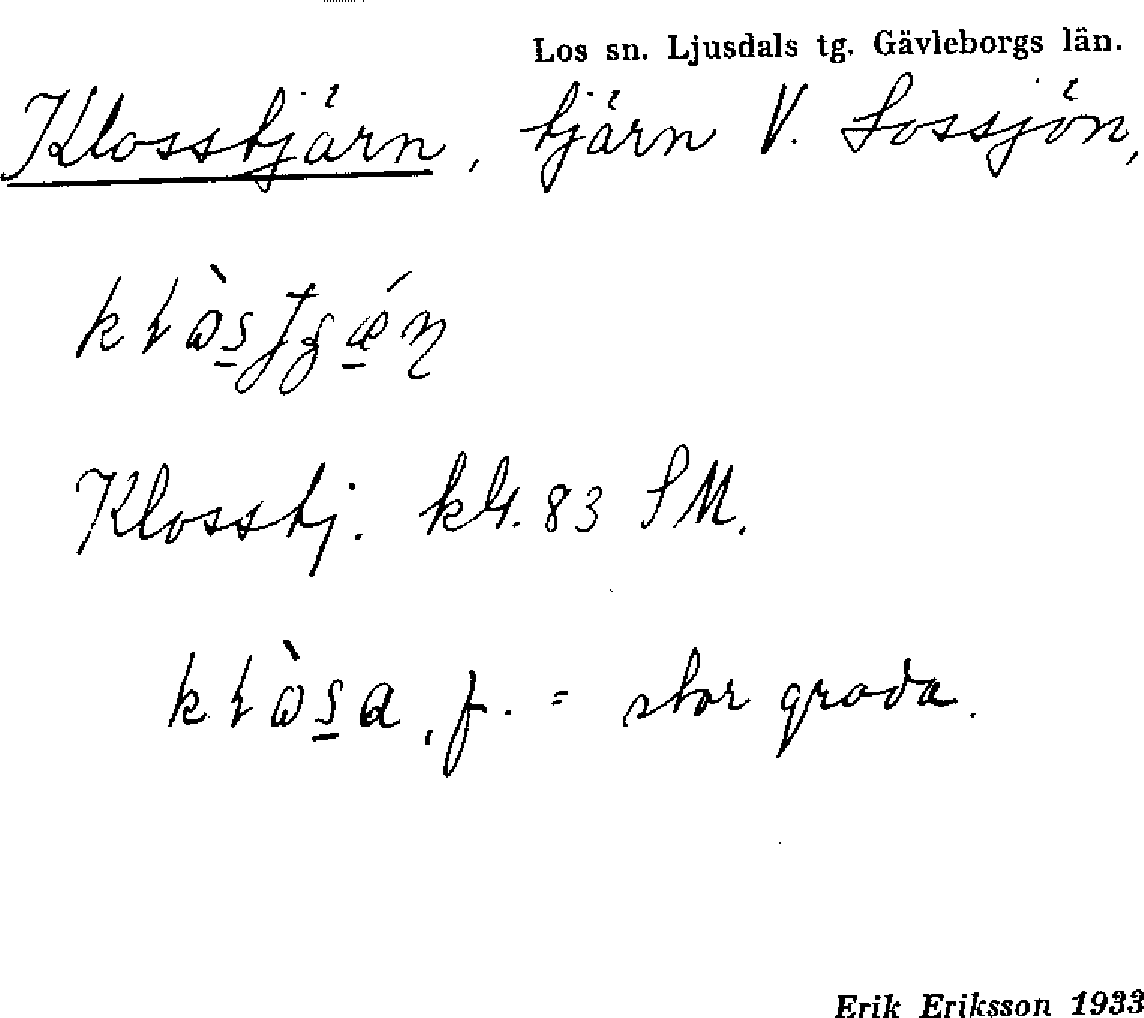 Los sn. Ljusdals tg. Gävleborgs län.
Klosstjärn, tjärn V. Lossjön,
Klosstj. kbl. 83 SM.
, f. = stor groda.
Erik Eriksson 1933